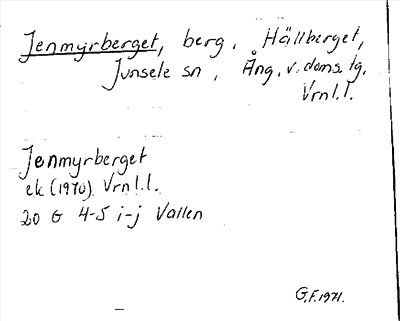 Jenmyrberget, berg. Hällberget,
Junsele sn, Ång. v. doms. tg.
Vrnl.l.
Jenmyrberget
ek (1970). Vrnl.l.
20 G 4-5 i-j Vallen
G.F. 1971.